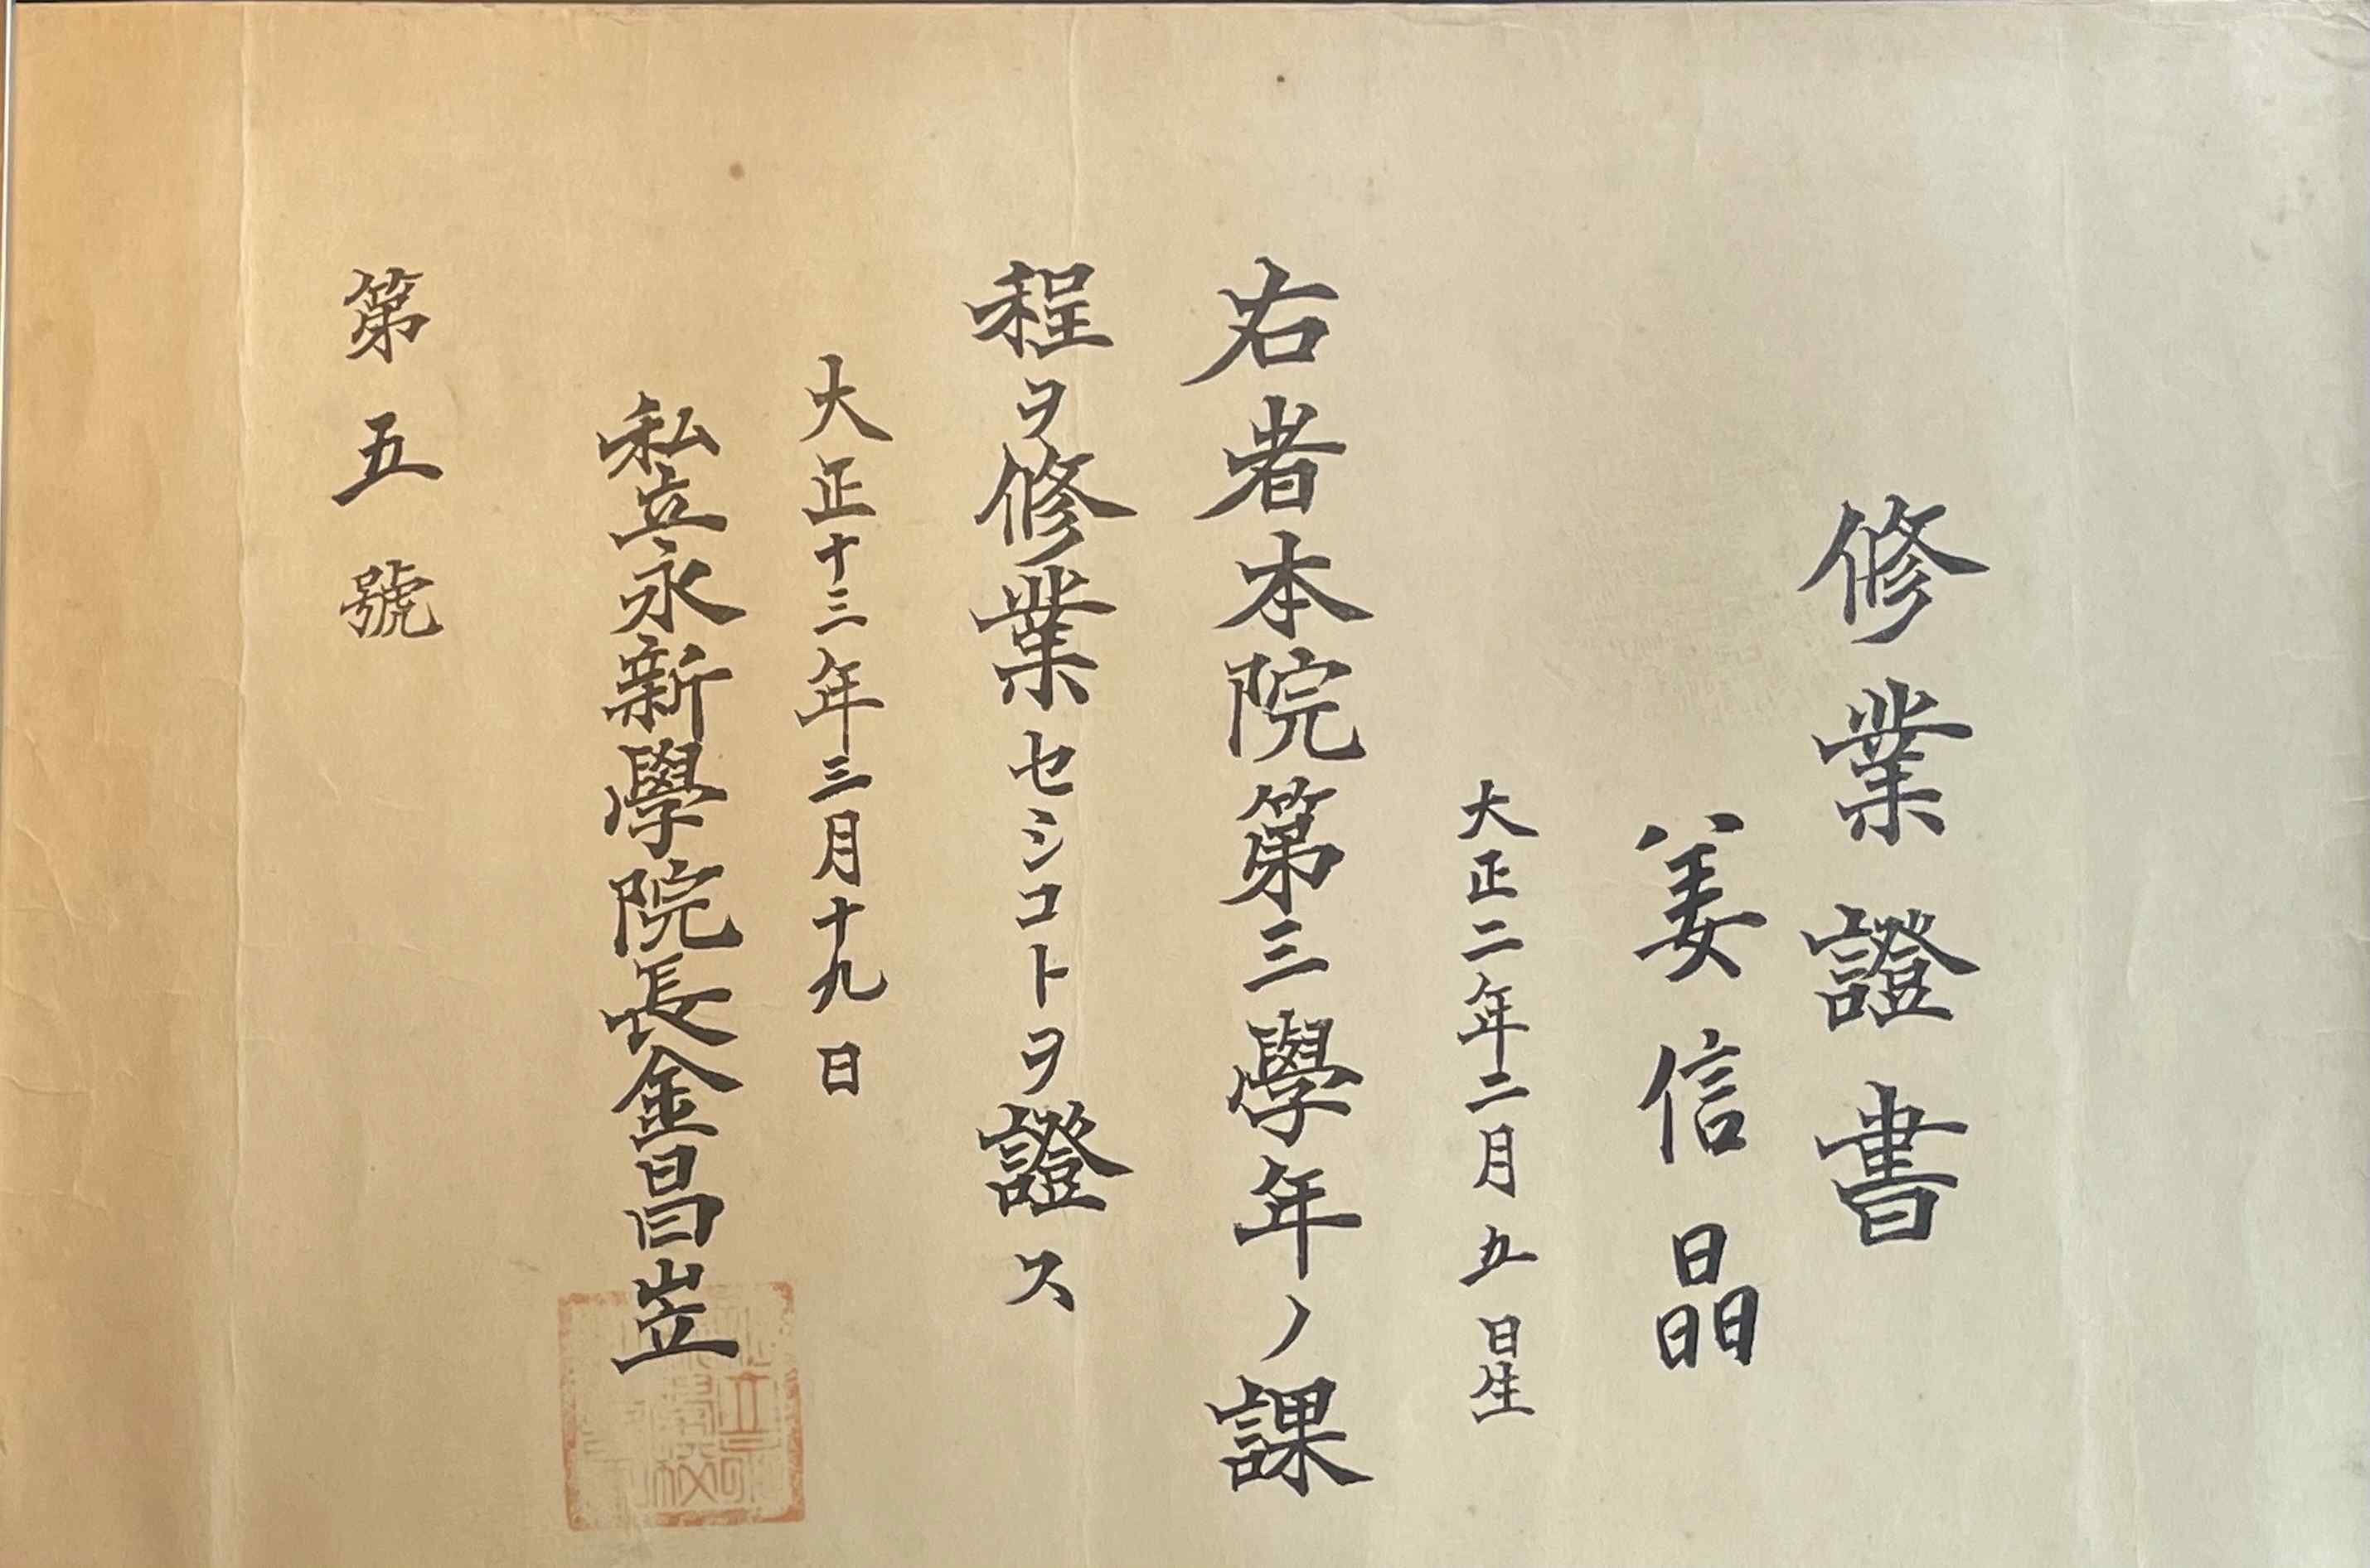 修業證書
姜信晶
大正二年二月五日生
右者本院第三學年ノ課
程ヲ修業セシコトヲ證ス
大正十三年三月十九日
私立永新學院長金昌岦
第五號